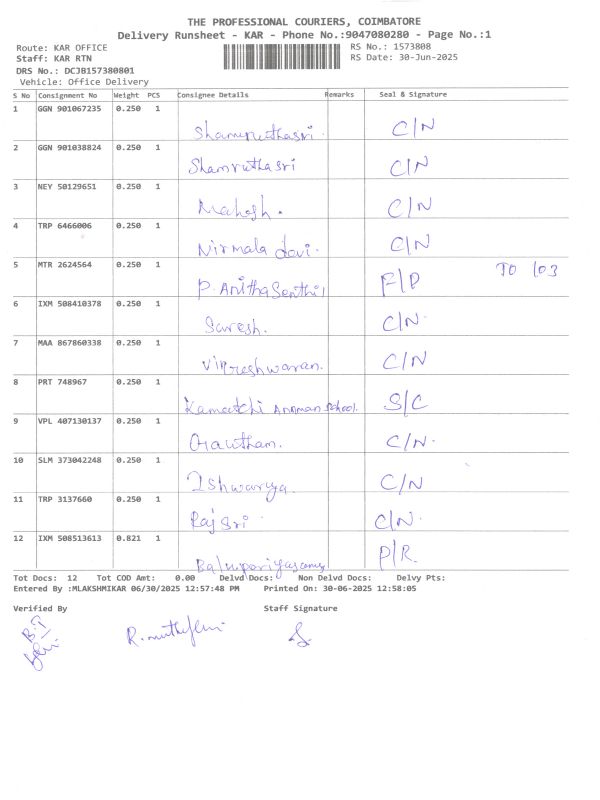 THE PROFESSIONAL COURIERS, COIMBATORE
Delivery Runsheet - KAR - Phone No.:9047080280 - Page No.:1
Route: KAR OFFICE RS No.: 1573808
Staff: KAR RTN RS Date: 30-Jun-2025
DRS No.: DCJB157380801
Vehicle: Office Delivery
S No Consignment No Weight PCS Consignee Details Remarks Seal & Signature
1 GGN 901067235 0.250 1 C/N
2 GGN 901038824 0.250 1 Shamruthasri C/N
3 NEY 50129651 0.250 1 Mahesh. C/N
4 TRP 6466006 0.250 1 Nirmala devi. C/N
5 MTR 2624564 0.250 1 P. Anitha Senthil F/D TO 103
6 IXM 508410378 0.250 1 Suresh. C/N.
7 MAA 867860338 0.250 1 C/N
8 PRT 748967 0.250 1 Kamatchi Amman School. S/C
9 VPL 407130137 0.250 1 Gautham. C/N.
10 SLM 373042248 0.250 1 Ishwarya. C/N
11 TRP 3137660 0.250 1 Raj Sri C/N.
12 IXM 508513613 0.821 1 P/R.
Tot Docs: 12 Tot COD Amt: 0.00 Delvd Docs: Non Delvd Docs: Delvy Pts:
Entered By :MLAKSHMIKAR 06/30/2025 12:57:48 PM Printed On: 30-06-2025 12:58:05
Verified By Staff Signature